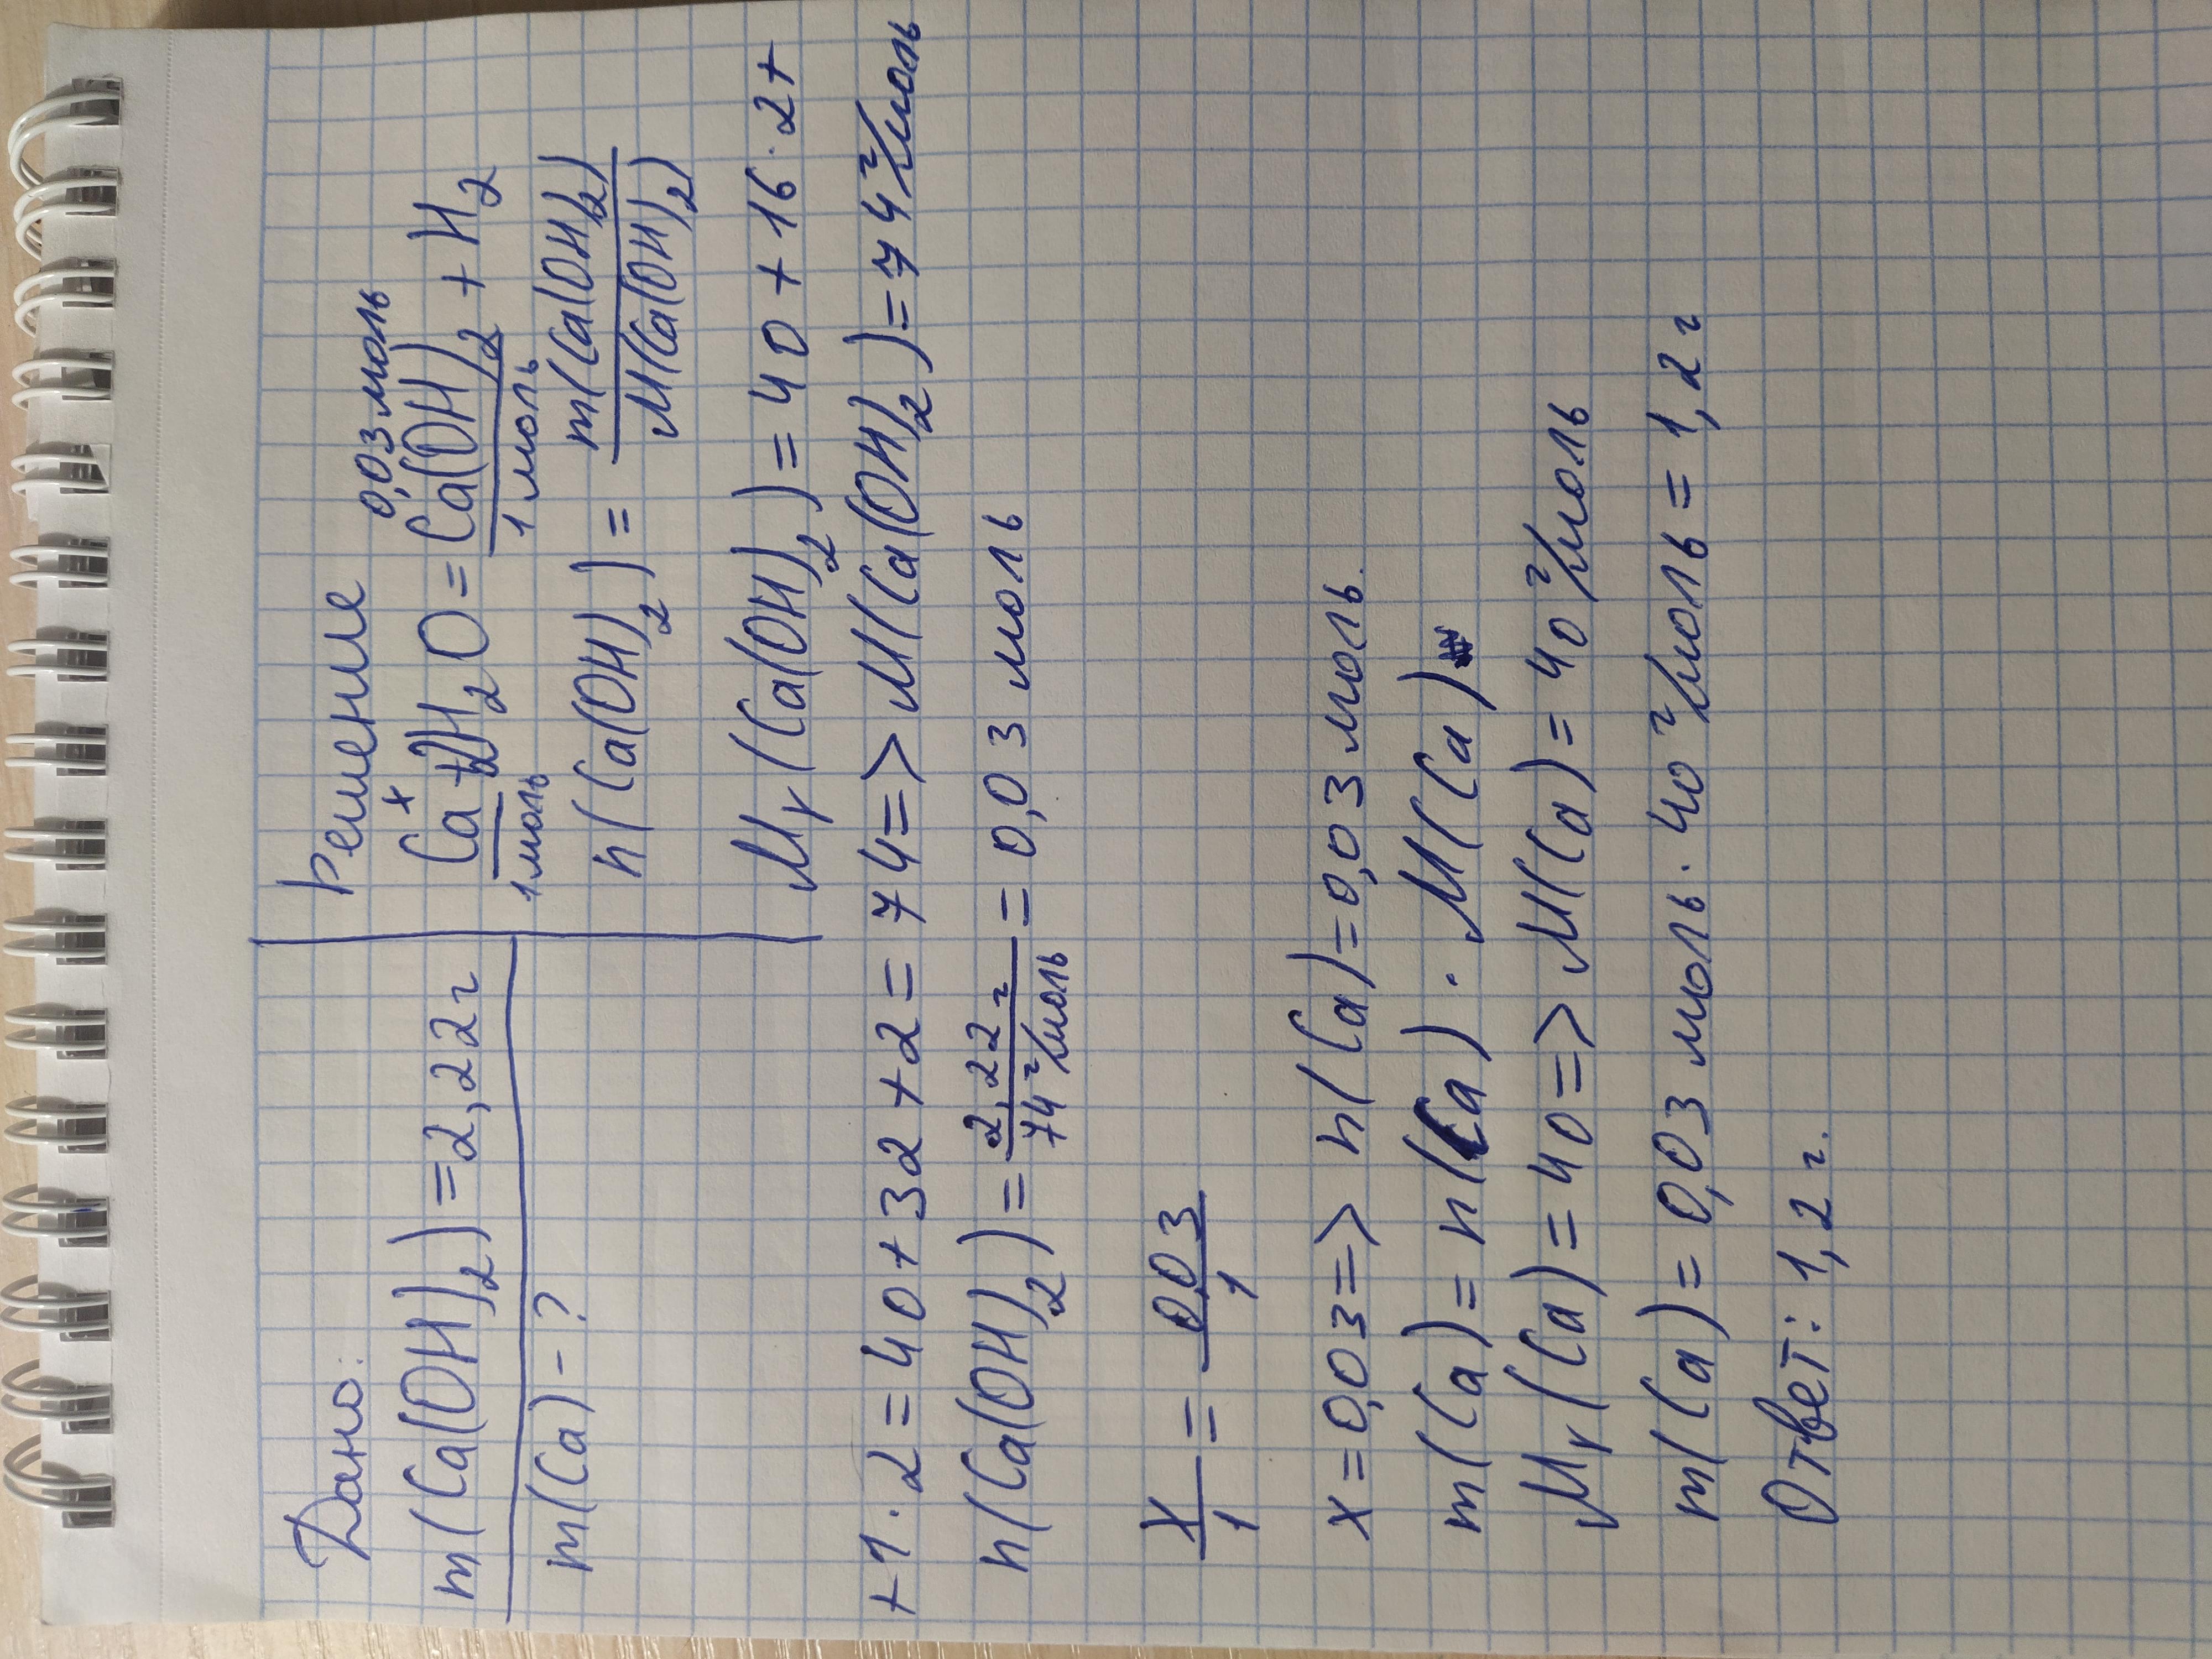 Дано:
m(Ca(OH)₂)=2,22г
m(Ca)-?
Решение
x 0,03моль
Ca+2H₂O=Ca(OH)₂+H₂
1моль 1моль
n(Ca(OH)₂)=m(Ca(OH)₂)/M(Ca(OH)₂)
Mr(Ca(OH)₂)=40+16·2+
+1·2=40+32+2=74=>M(Ca(OH)₂)=74г/моль
n(Ca(OH)₂)=2,22г/74г/моль=0,03 моль
x/1=0,03/1
x=0,03=>n(Ca)=0,03моль.
m(Ca)=n(Ca)·M(Ca)
Mr(Ca)=40=>M(Ca)=40г/моль
m(Ca)=0,03 моль·40г/моль=1,2г
Ответ: 1,2г.